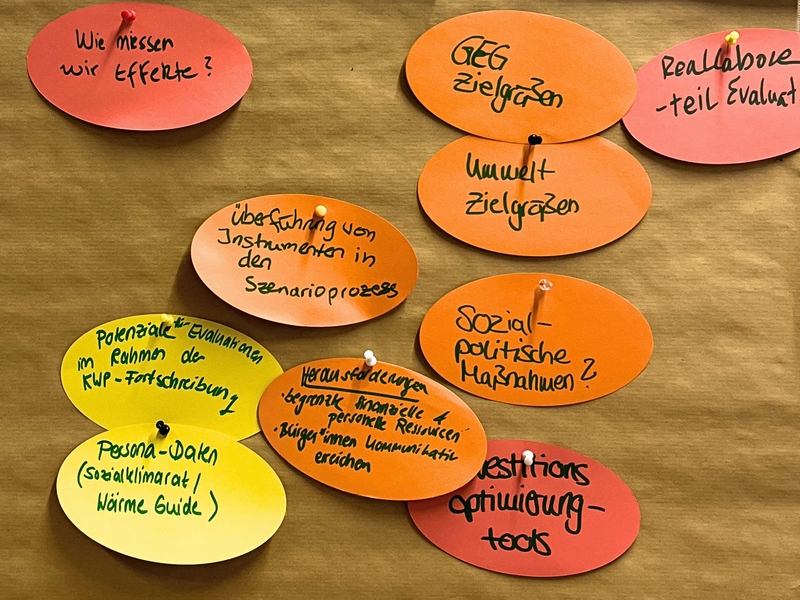 Wie messen
wir Effekte?
GEG
Zielgrößen
Reallabore
-teil Evaluat
Umwelt
Zielgrößen
Überführung von
Instrumenten in
den
Szenarioprozess
Sozial-
politische
Maßnahmen?
Potenziale für Evaluationen
im Rahmen der
KWP-Fortschreibung
Herausforderungen
·begrenzte finanzielle &
personelle Ressourcen
·Bürger*innen kommunikativ
erreichen
Persona-Daten
(Sozialklimarat/
Wärme Guide)
vestitions
optimierung-
tools